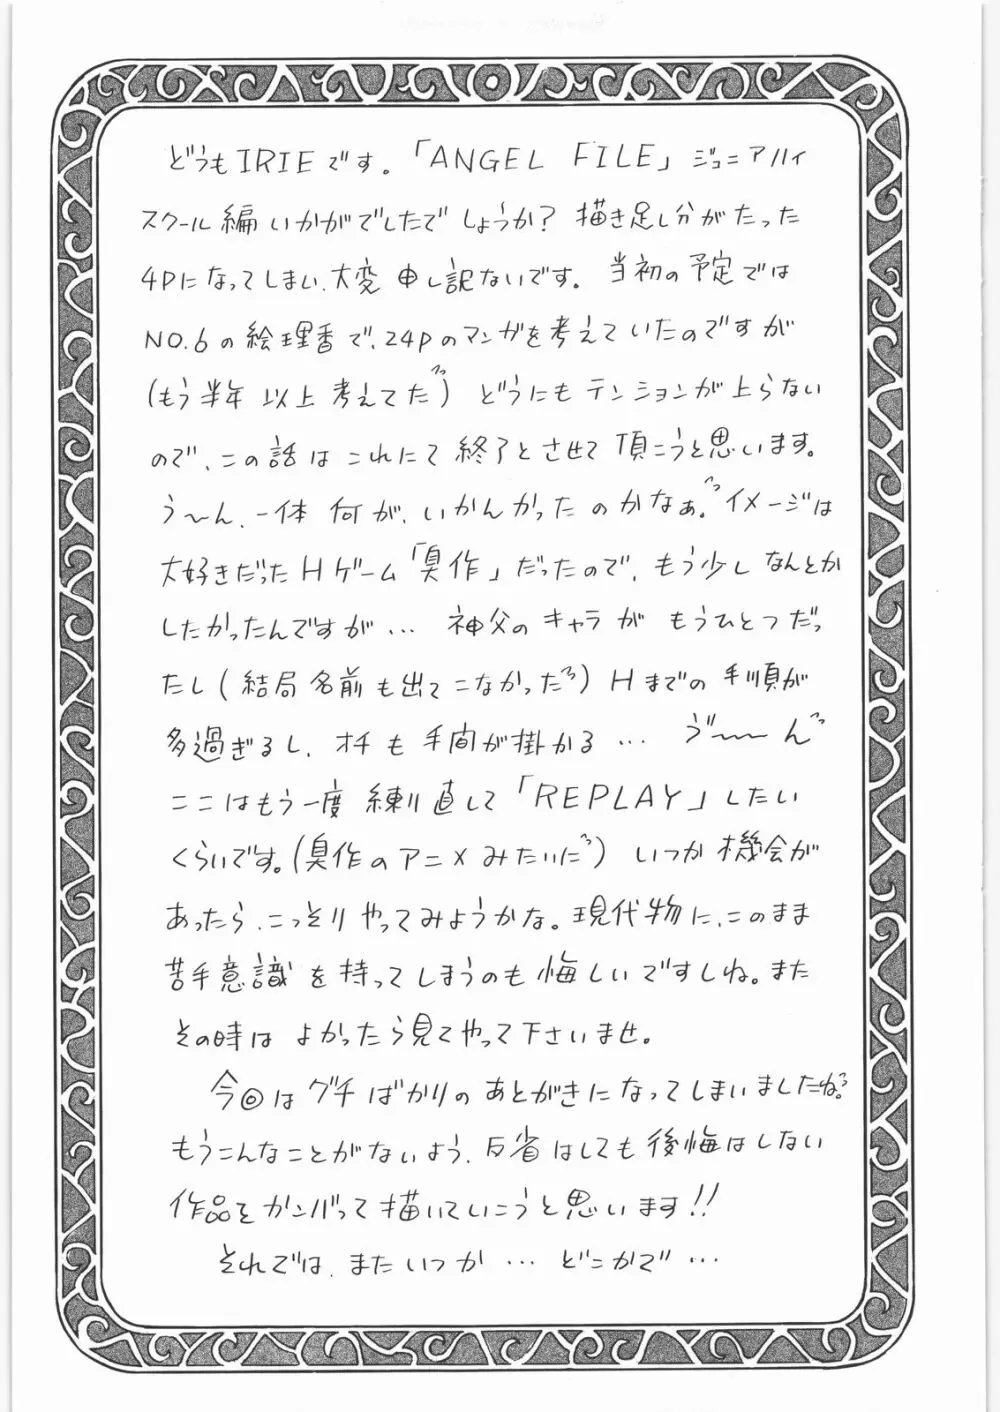 どうもIRIEです。「ANGEL FILE」ジュニアハイ
スクール編いかがでしたでしょうか？描き足し分がたった
4Pになってしまい、大変申し訳ないです。当初の予定では
NO.6の絵理香で、24Pのマンガを考えていたのですが
(もう半年以上考えてたっ) どうにもテンションが上らない
ので、この話はこれにて終了とさせて頂こうと思います。
う〜ん、一体何が、いかんかったのかなぁ。っイメージは
大好きだったHゲーム「臭作」だったので、もう少しなんとか
したかったんですが… 神父のキャラがもうひとつだっ
たし(結局名前も出てこなかったっ)Hまでの手順が
多過ぎるし、オチも手間が掛かる… ゔ〜〜んっ
ここはもう一度練り直して「REPLAY」したい
くらいです。(臭作のアニメみたいにっ) いつか機会が
あったら、こっそりやってみようかな。現代物に、このまま
苦手意識を持ってしまうのも悔しいですしね。また
その時はよかったら見てやって下さいませ。
今回はグチばかりのあとがきになってしまいましたね。っ
もうこんなことがないよう、反省はしても後悔はしない
作品をガンバって描いていこうと思います!!
それでは、またいつか…どこかで…